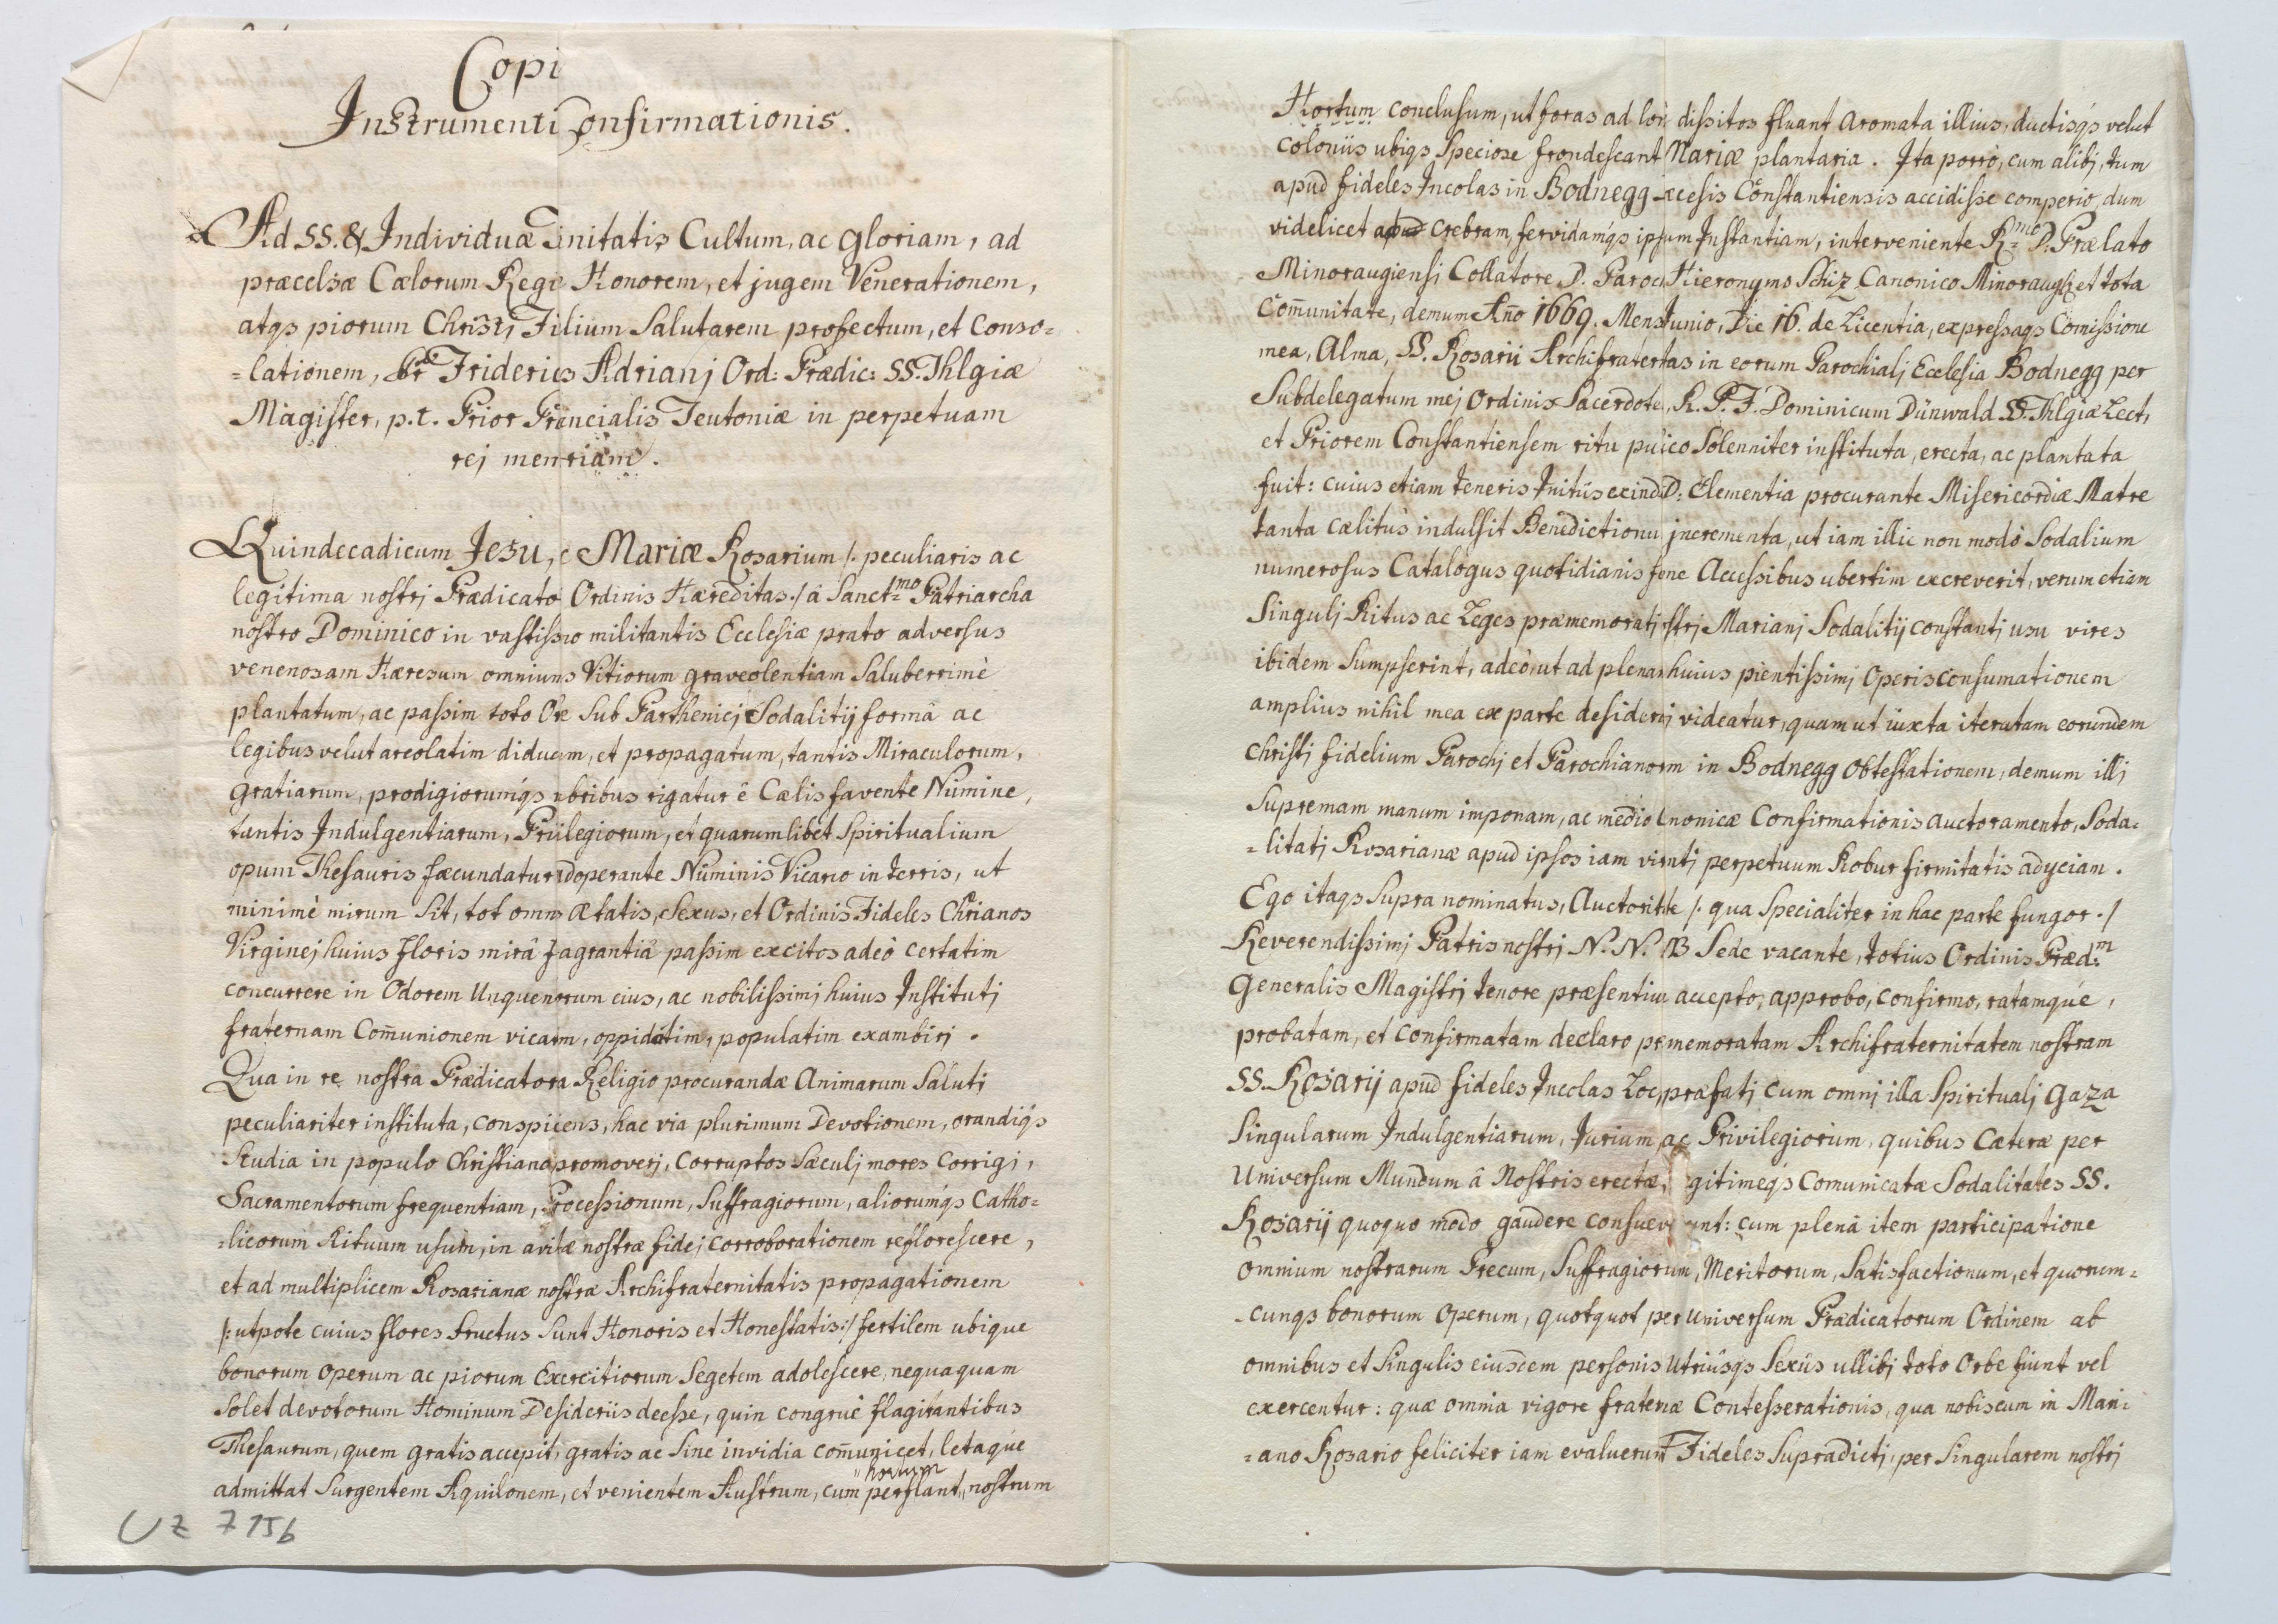 Copi
Instrumenti Confirmationis.
Ad SS. & Individuæ Trinitatis Cultum, ac gloriam, ad
præcelsæ Cælorum Regi Honorem, et jugem Venerationem,
atqs piorum Christi Filium Salutarem profectum, et Conso=
=lationem, Fr Fridericus Adrianj Ord: Prædic: SS. Thlgiæ
Magister, p.t. Prior Princialis Teutoniæ in perpetuam
rej memoriam.
Quindecadicum Jesu, e Mariæ Rosarium /: peculiaris ac
legitima nostrj Prædicato Ordinis Hæreditas :/ à Sanct=mo Patriarcha
nostro Dominico in vastissimo militantis Ecclesiæ prato adversus
venenosam Hæresum omnium Vitiorum graveolentiam Saluberrimè
plantatum, ac passim toto Orbe Sub Parthenicj Sodalitij formâ ac
legibus velut areolatim diducam, et propagatum, tantis Miraculorum,
gratiarum, prodigiorumqs ubribus rigatur è Cælis favente Numine,
tantis Indulgentiarum, Priilegiorum, et quarumlibet Spiritualium
opum Thesauris fæcundatur doperante Numinis Vicario in terris, ut
minimè mirum Sit, tot omnis Ætatis, Sexus, et Ordinis Fideles Chrianos
Virginej huius Floris mirâ fragrantiâ passim excitos adeò certatim
concurrere in Odorem Unguentorum eius, ac nobilissimj huius Institutj
fraternam Com̄unionem vicatim, oppidatim, populatim exambiri.
Qua in re nostra Prædicatora Religio procurandæ Animarum Salutj
peculiariter instituta, conspiciens, hac via plurimum Devotionem, orandiqs
Studia in populo Christiano promoverj, Corruptos Sæculj mores Corrigi,
Sacramentorum frequentiam, Processionum, Suffragiorum, aliorumqs Catho=
=licorum Rituum usum, in avitæ nostræ fidej corroborationem reflorescere,
et ad multiplicem Rosarianæ nostræ Archifraternitatis propagationem
/: utpote cuius flores fructus Sunt Honoris et Honestatis :/ fertilem ubique
bonorum operum ac piorum Exercitiorum Segetem adolescere, nequaquam
Solet devotorum Hominum Desideriis deesse, quin congruè flagitantibus
Thesaurum, quem gratis accepit, gratis ac Sine invidia com̄unicet, letaque
admittat Surgentem Aquilonem, et venientem Austrum, cum "horum perflant, nostrum
UZ 7156
Hortum conclusum, ut foras ad lon dissitos fluant aromata illius, ductisqs velut
Coloniis ubiqs Speciose frondescant Mariæ plantaria. Ita porrò, cum alibj, tum
apud fideles Incolas in Bodnegg iæcesis Constantiensis accidisse comperio, dum
videlicet apud crebram, fervidamqs ipsum Instantiam, interveniente R=mo D. Prælato
Minoraugiensi Collatore D. Paroc Hieronymo Schiz Canonico Minoraugi et tota
Com̄unitate, demum An̄o 1669. Mens Junio, Die 16. de Licentia, expressaqs Com̄issione
mea, Alma, SS. Rosarii Archifraternitas in eorum Parochialj Ecclesia Bodnegg per
Subdelegatum mej Ordinis Sacerdotem, R. P. F. Dominicum Dünwald SS. Thlgiæ Lect,
et Priorem Constantiensem ritu puico Solenniter instituta, erecta, ac plantata
fuit: cuius etiam teneris Initiis exinde D: Clementia procurante Misericordiæ Matre
tanta cælitus indulsit Benedictionu jncrementa, ut iam illic non modò Sodalium
numerosus Catalogus quotidianis fene Accessibus ubertim excreverit, verum etiam
Singulj Ritus ac Leges præmemoratj strj Marianj Sodalitij constantj usu vires
ibidem Sumpserint, adeò ut ad plenam huius pientissimj Operis consumationem
amplius nihil mea ex parte desiderij videatur, quam ut iuxta iteratam eorundem
Christj fidelium Parochj et Parochianorm in Bodnegg obtestationem, demum illj
Supremam manum imponam, ac medio nonicæ Confirmationis auctoramento, Soda=
=litatj Rosarianæ apud ipsos iam virntj perpetuum Robur firmitatis adyciam.
Ego itaqs Supra nominatus, Auctoritte /: qua Specialiter in hac parte fungor :/
Reverendissimj Patris nostrj N. N. B Sede vacante, totius Ordinis Præd:m
Generalis Magistrj tenore præsentium accepto, approbo, confirmo, ratamque,
probatam, et confirmatam declaro prememoratam Archifraternitatem nostram
SS. Rosarij apud fideles Incolas Loc præfatj cum omnj illa Spiritualj Gaza
Singularum Indulgentiarum, Jurium, ac Privilegiorum, quibus Cæteræ per
Universum Mundum à Nostris erectæ, gitimeqs Comunicatæ Sodalitates SS.
Rosarij quoquo modo gaudere consueverunt: cum plenâ item participatione
omnium nostrarum Precum, Suffragiorum, Meritorum, Satisfactionum, et quorum=
=cunqs bonorum operum, quotquot per universum Prædicatorum Ordinem ab
omnibus et Singulis eiusdem personis utriusqs Sexûs ullibj toto Orbe fiunt vel
exercentur: quæ omnia vigore fraternæ Contesserationis, qua nobiscum in Mari=
=ano Rosario feliciter iam evaluerunt Fideles Supradicti, per Singularem nostrj